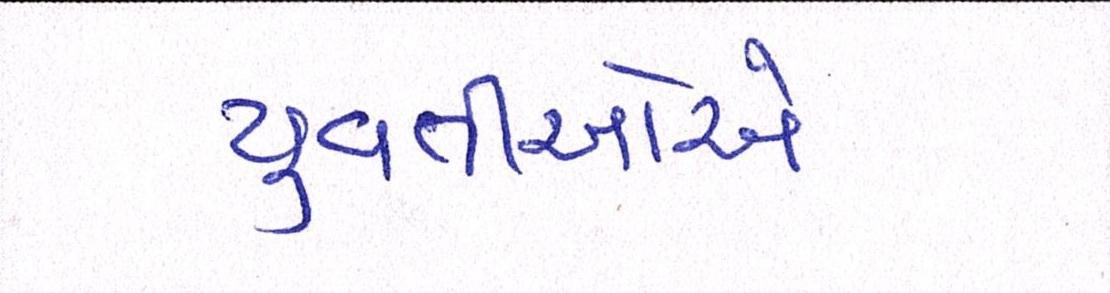 યુવતીઓએ